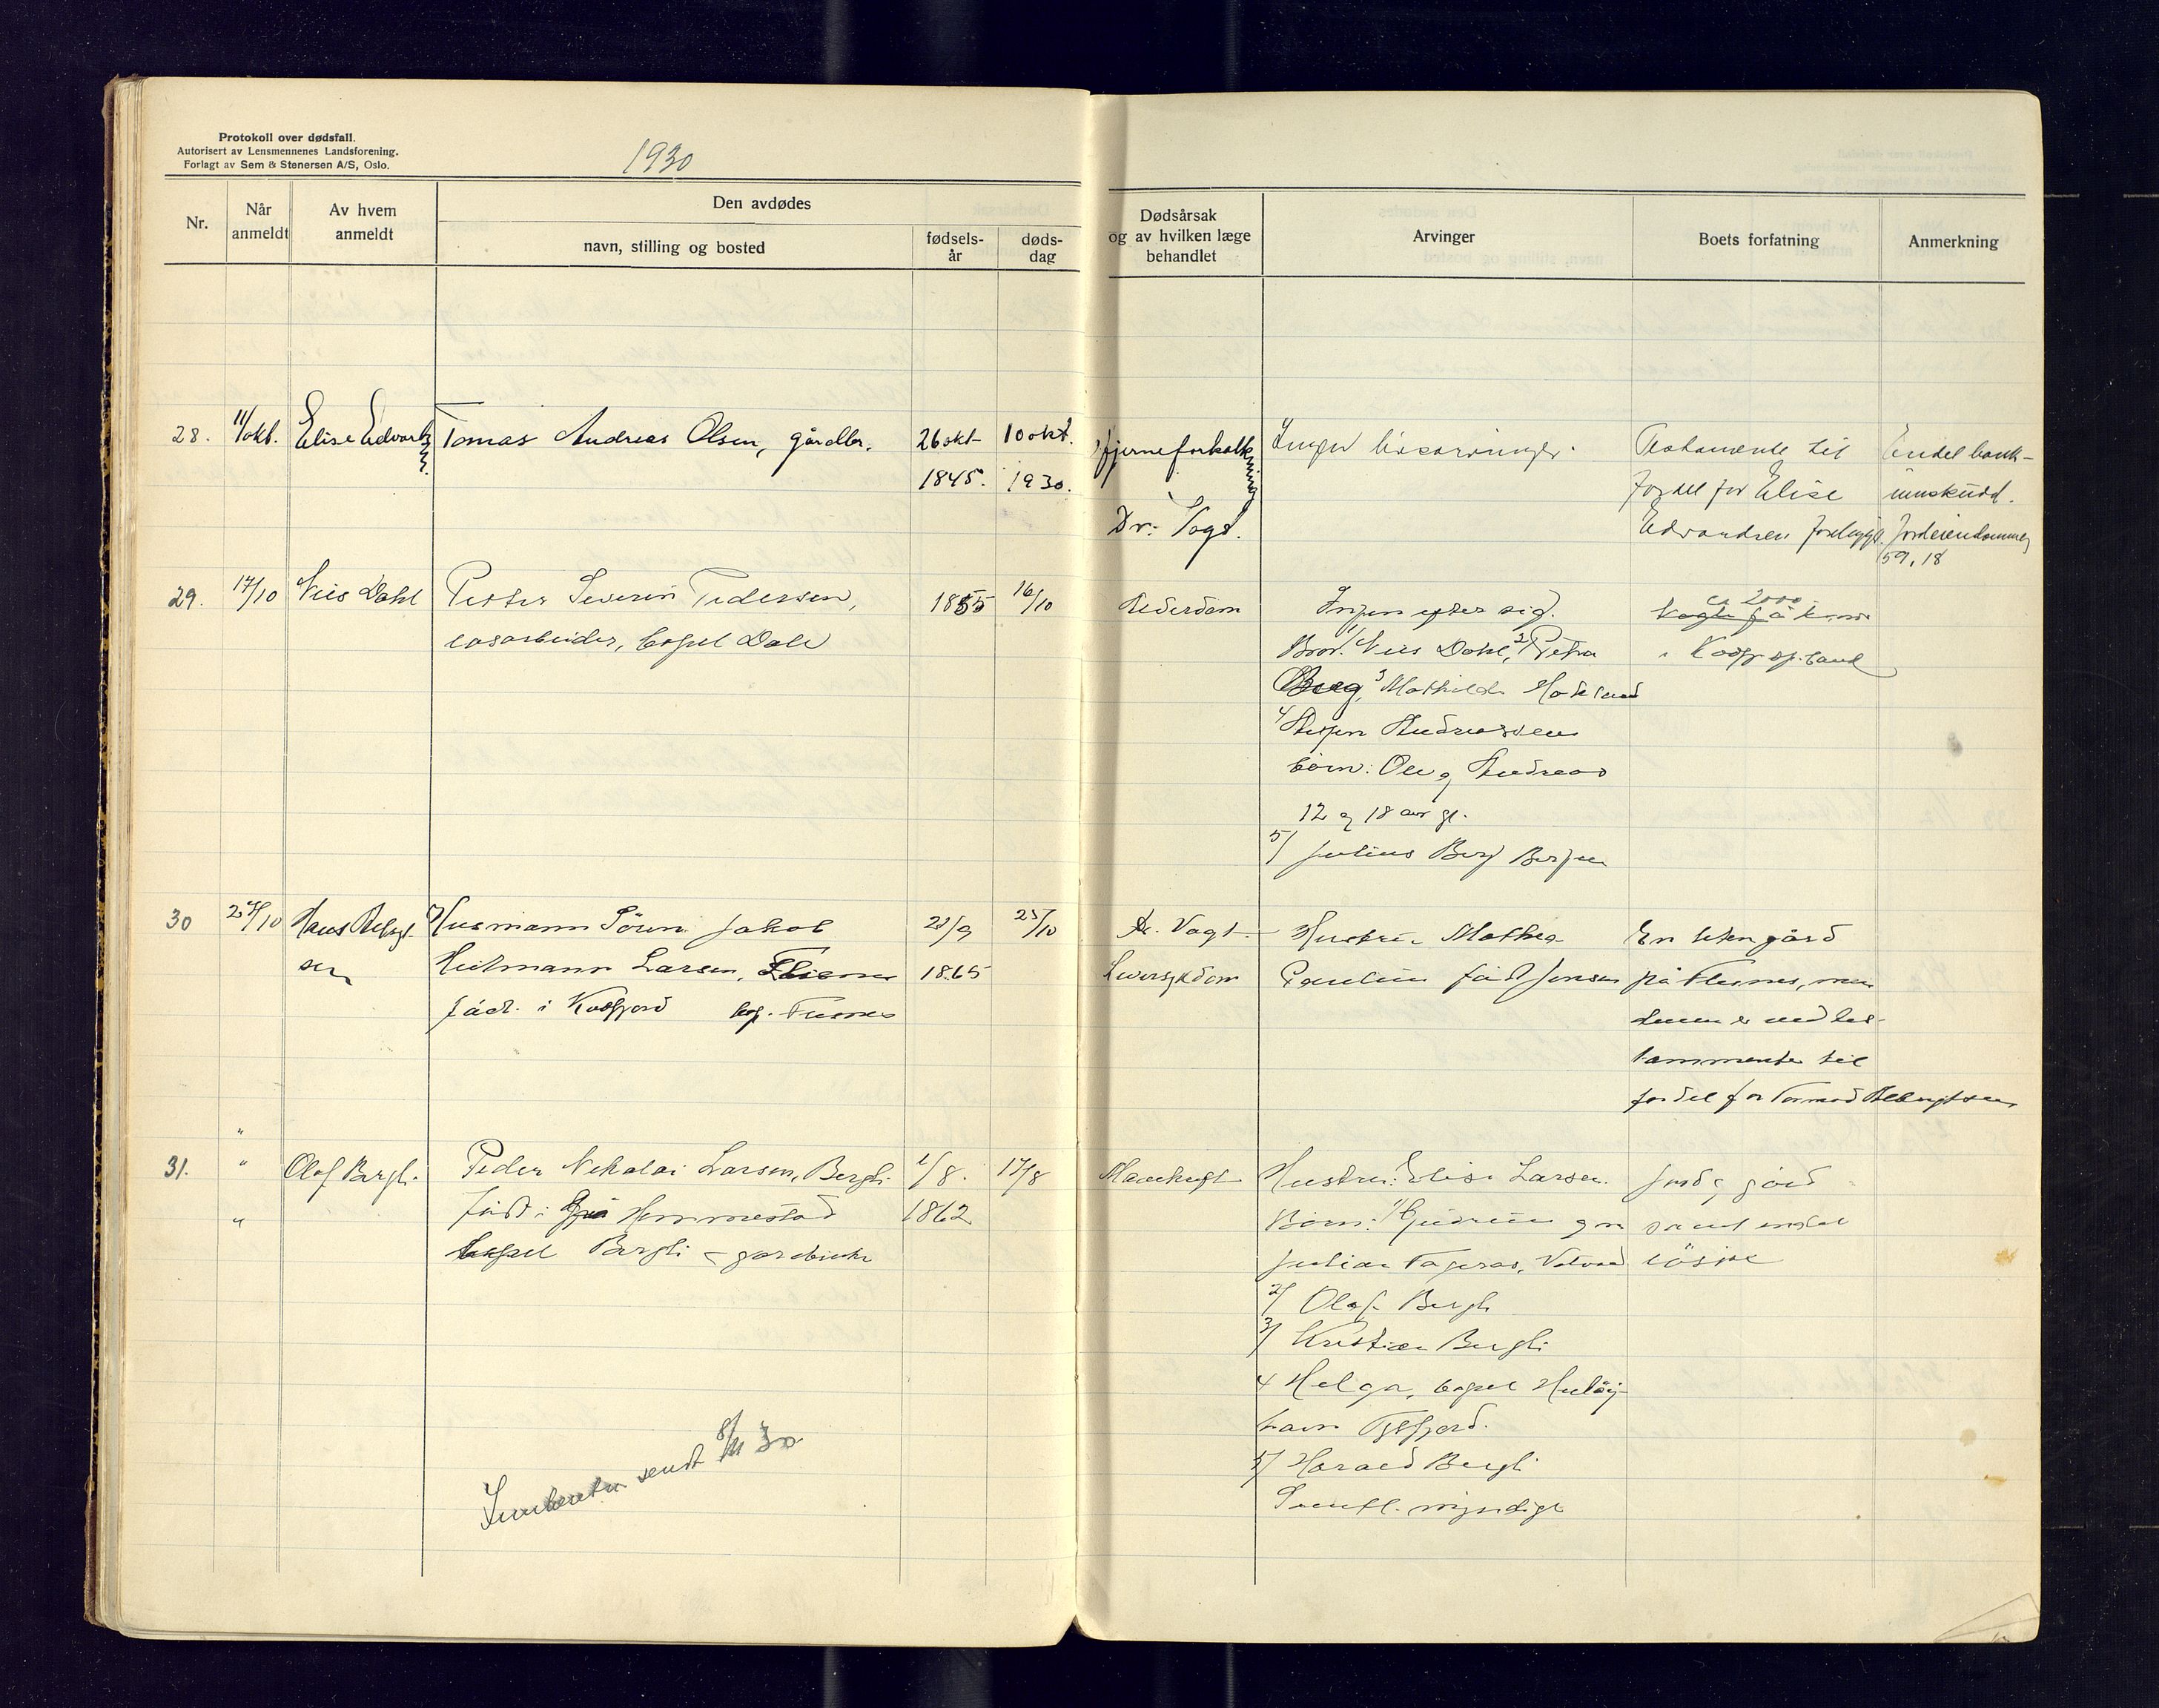 Protokoll over dødsfall.
Autorisert av Lensmennenes Landsforening.
Forlagt av Sem & Stenersen A/S, Oslo.
1930
Nr.
Når
anmeldt
Av hvem
anmeldt
Den avdødes
navn, stilling og bosted
fødsels-
år
døds-
dag
Dødsårsak
og av hvilken læge
behandlet
Arvinger
Boets forfatning
Anmerkning
28. 11/okt. Elise Edvard Tomas Andreas Olsen, gårdbr. 26 okt 10 okt. Hjerneforkalk Ingen livsarvinger. Testamente til Endel bank-
1845. 1930. fordel for Elise innskudd.
Dr. Vogt. Edvardsen Jordeiendommen
59, 18
29. 17/10 Nils Dahl Peder Severin Pedersen, 1855 16/10 Alderdom Ingen efter sig. ca 2000
løsarbeider, bopel Dale Bror: 1/ Nils Dahl, 2/ Petra i sp.bank
Berg, 3 Mathilde
4/ Andreassen
børn: Ole og Andreas
12 og 18 år gl.
5/ Julius Berg Bergen
30 27/10 Hans Husmann Sören Jakob 21/9 25/10 Dr. Vogt Hustru Mathea En liten gård
sen Heitmann Larsen, 1865 Leversykdom Pauline född Jensen på Flesnes, men
född i Kasfjord bop. Flesnes denne er ved tes-
tammente til
fordel for Tormod Albrigtsen
31. " Olaf Bergli Peder Nikolai Larsen, Bergli 1/8. 17/8 Mavekreft Hustru: Elise Larsen. Jord og gård
" född i Hemmestad 1862 Børn: 1/ Gudrun g.m. samt endel
bopel Bergli gårdbruker Julian Fagerås, løsøre
2/ Olaf Bergli
3/ Kristian Bergli
4 Helga, bopel
havn Tysfjord.
5/ Harald Bergli
Samtl. myndige
sendt 8/11 30